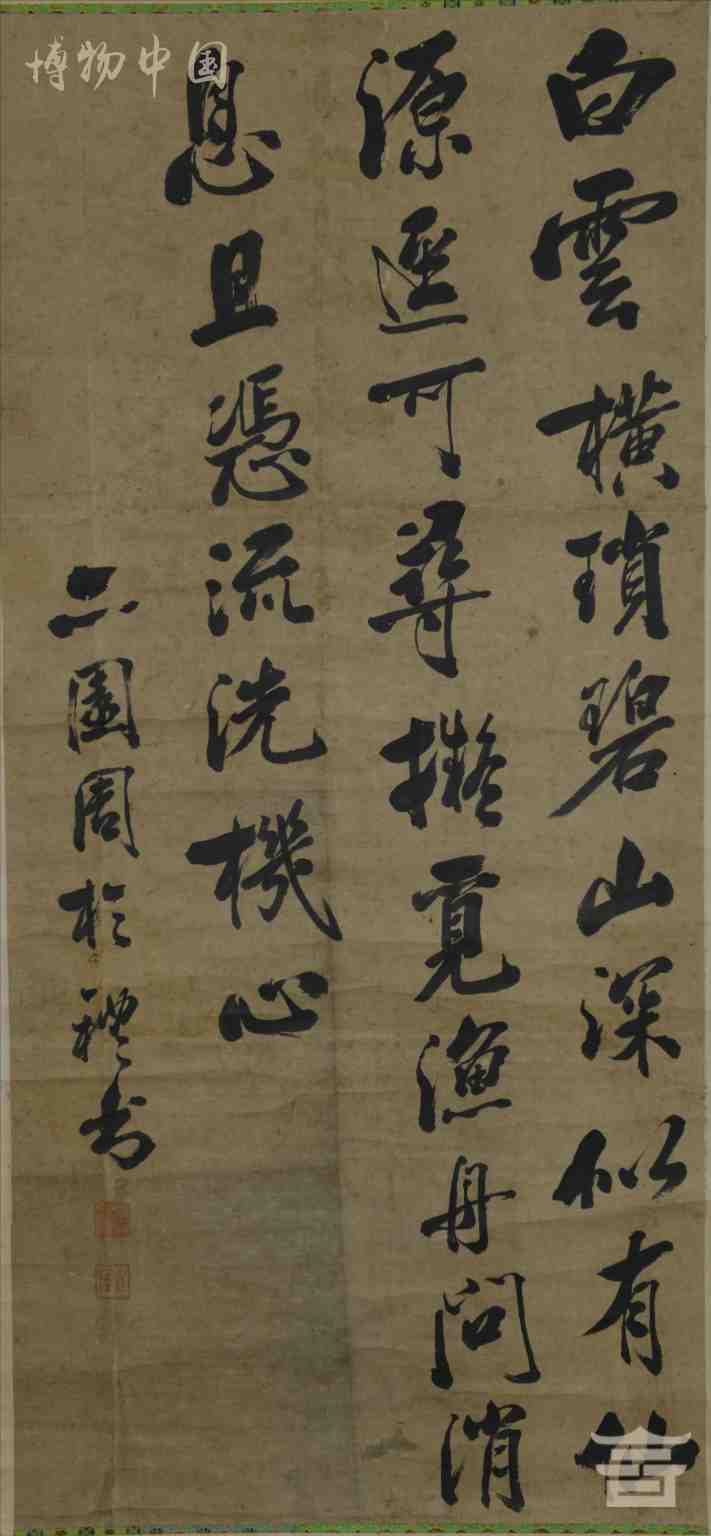 博物中国
白雲橫瑣碧山深似有仙
源逕可尋擬覓漁舟問消
息且憑流洗機心
亦園周於禮书